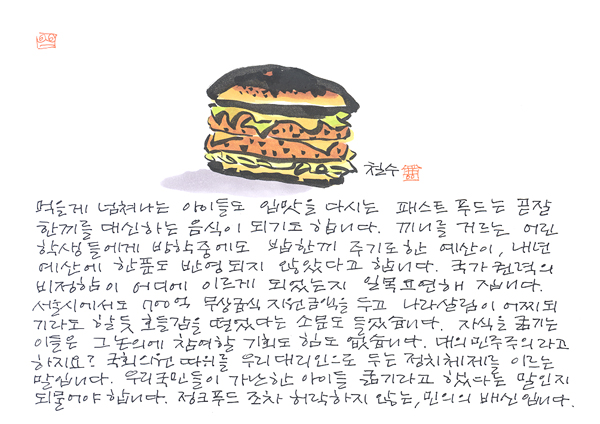 철수
먹을게 넘쳐나는 아이들도 입맛을 다시는 패스트푸드는 곧잘
한끼를 대신하는 음식이 되기도 합니다. 끼니를 거르는 어린
학생들에게 방학중에도 밥한끼 주기로한 예산이, 내년
예산에 한푼도 반영되지 않았다고 합니다. 국가권력의
비정함이 어디에 이르게 되었는지 일목요연해 집니다.
서울시에서도 700억 무상급식 지원금액을 두고 나라살림이 어찌되
기라도 할듯 호들갑을 떨었다는 소문도 들었습니다. 자식을 굶기는
이들은 그 논의에 참여할 기회도 힘도 없습니다. 대의민주주의라고
하지요? 국회의원 따위를 우리 대리인으로 두는 정치체제를 이르는
말입니다. 우리국민들이 가난한 아이들 굶기라고 했다는 말인지
되물어야 합니다. 정크푸드 조차 허락하지 않는, 민의의 배신입니다.